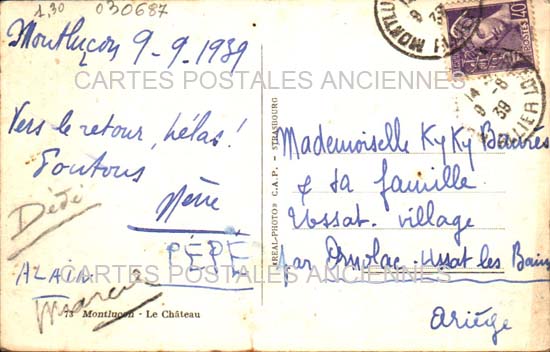 1,30 030687
Montluçon 9-9-1939
Vers le retour, hélas !
Toutous
Mémé
PÉPÉ
Dédé
ALAIN
Marcel
73 Montluçon - Le Château
"REAL-PHOTO" C.A.P. - STRASBOURG
POSTES 40
MONTLU
14
9-8
39
ALLIER
Mademoiselle KyKy
& sa famille
Ussat. village
par Ornolac-Ussat les Bains
Ariège
CARTES POSTALES ANCIENNES
CARTES POSTALES ANCIENNES